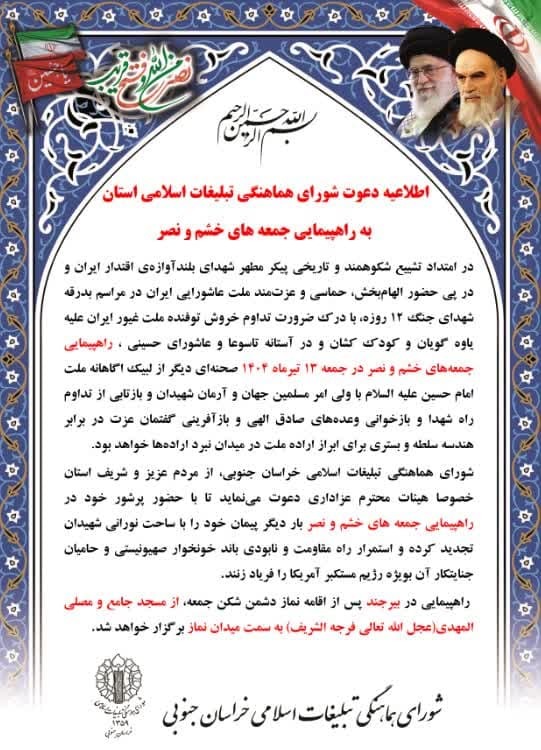 نصر من الله و فتح قریب
بسم الله الرحمن الرحیم
اطلاعیه دعوت شورای هماهنگی تبلیغات اسلامی استان
به راهپیمایی جمعه های خشم و نصر
در امتداد تشییع شکوهمند و تاریخی پیکر مطهر شهدای بلندآوازه‌ی اقتدار ایران و
در پی حضور الهام‌بخش، حماسی و عزت‌مند ملت عاشورایی ایران در مراسم بدرقه
شهدای جنگ ۱۲ روزه، با درک ضرورت تداوم خروش توفنده ملت غیور ایران علیه
یاوه گویان و کودک کشان و در آستانه تاسوعا و عاشورای حسینی ، راهپیمایی
جمعه‌های خشم و نصر در جمعه ۱۳ تیرماه ۱۴۰۴ صحنه‌ای دیگر از لبیک آگاهانه ملت
امام حسین علیه السلام با ولی امر مسلمین جهان و آرمان شهیدان و بازتابی از تداوم
راه شهدا و بازخوانی وعده‌های صادق الهی و بازآفرینی گفتمان عزت در برابر
هندسه سلطه و بستری برای ابراز اراده ملت در میدان نبرد اراده‌ها خواهد بود.
شورای هماهنگی تبلیغات اسلامی خراسان جنوبی، از مردم عزیز و شریف استان
خصوصا هیئات محترم عزاداری دعوت می‌نماید تا با حضور پرشور خود در
راهپیمایی جمعه های خشم و نصر بار دیگر پیمان خود را با ساحت نورانی شهیدان
تجدید کرده و استمرار راه مقاومت و نابودی باند خونخوار صهیونیستی و حامیان
جنایتکار آن بویژه رژیم مستکبر آمریکا را فریاد زنند.
راهپیمایی در بیرجند پس از اقامه نماز دشمن شکن جمعه، از مسجد جامع و مصلی
المهدی(عجل الله تعالی فرجه الشریف) به سمت میدان نماز برگزار خواهد شد.
شورای هماهنگی تبلیغات اسلامی خراسان جنوبی
شورای هماهنگی تبلیغات اسلامی
۱۳۵۹
خراسان جنوبی